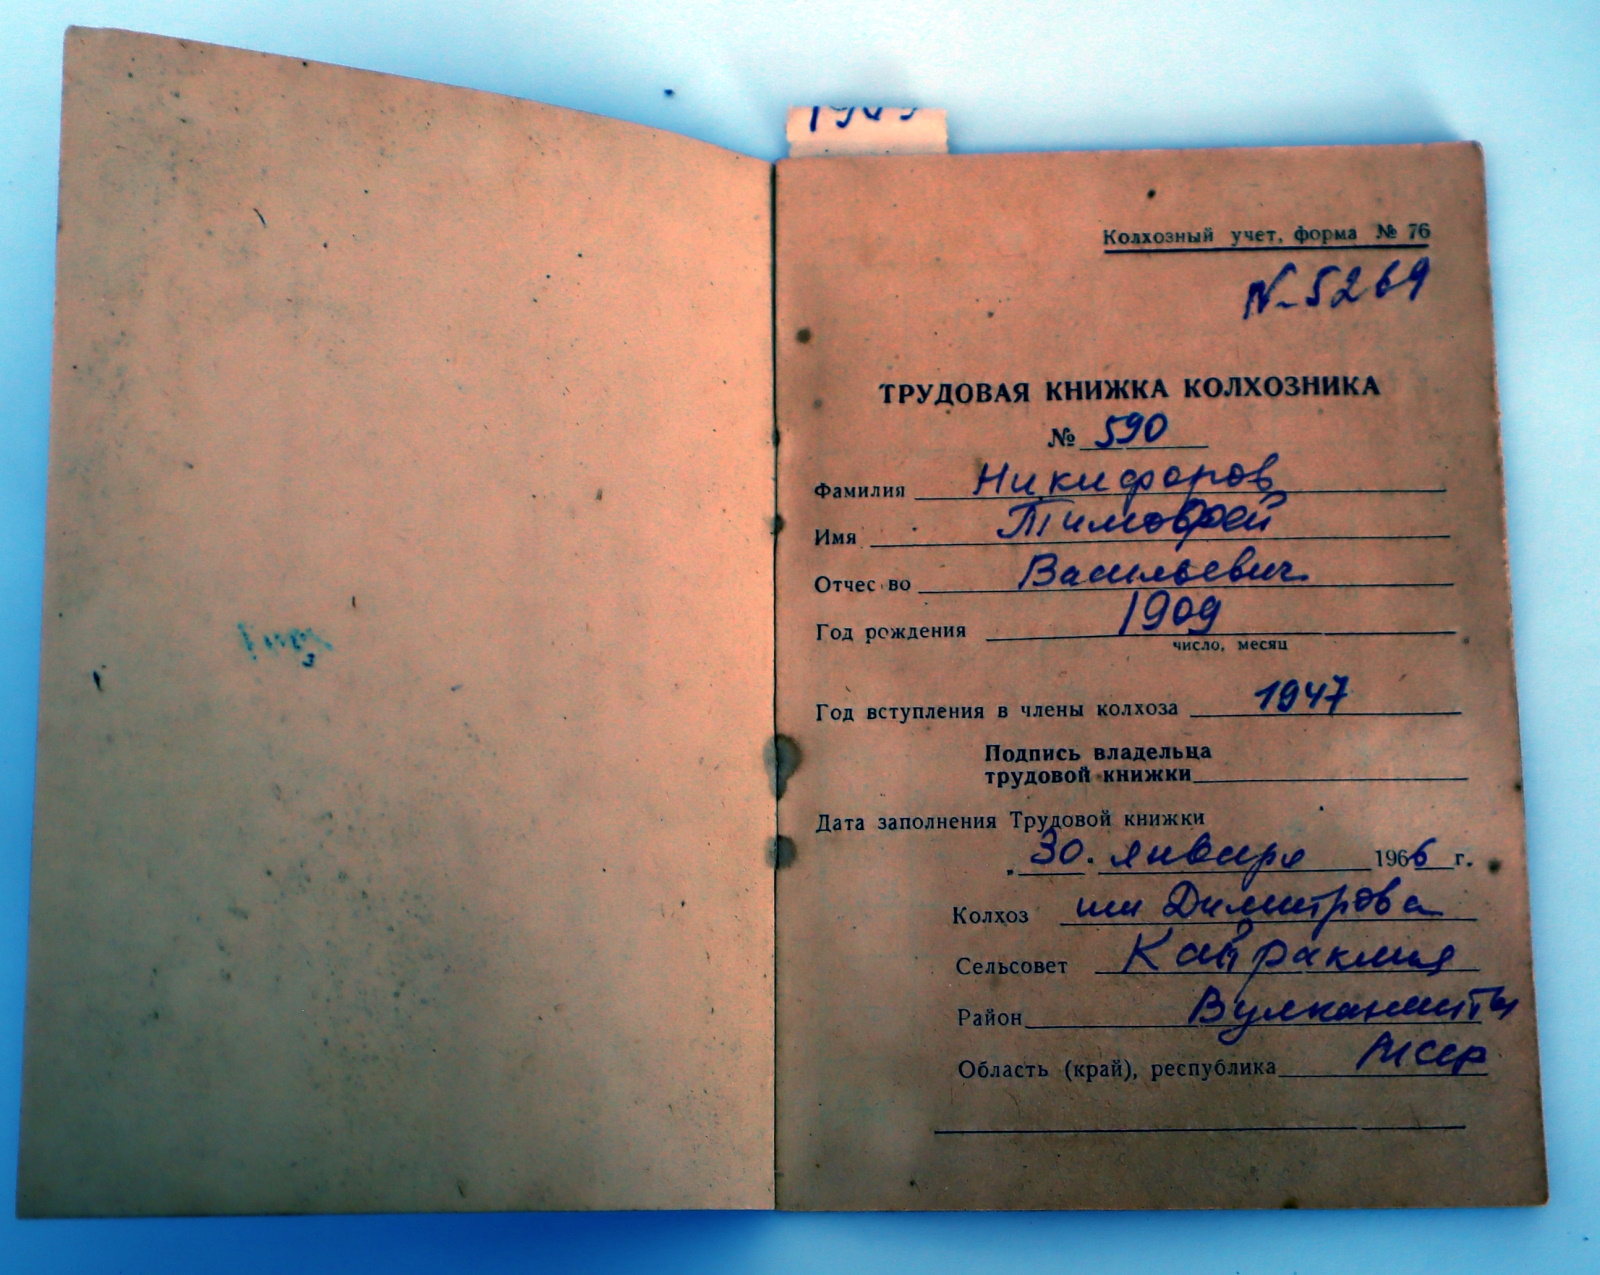 Колхозный учет, форма № 76
N-5269
ТРУДОВАЯ КНИЖКА КОЛХОЗНИКА
№ 590
Фамилия Никифоров
Имя Тимофей
Отчес во Васильевич
Год рождения 1909
число, месяц
Год вступления в члены колхоза 1947
Подпись владельца
трудовой книжки
Дата заполнения Трудовой книжки
30. января 1966 г.
Колхоз им Димитрова
Сельсовет Кайраклия
Район Вулканешты
Область (край), республика МССР